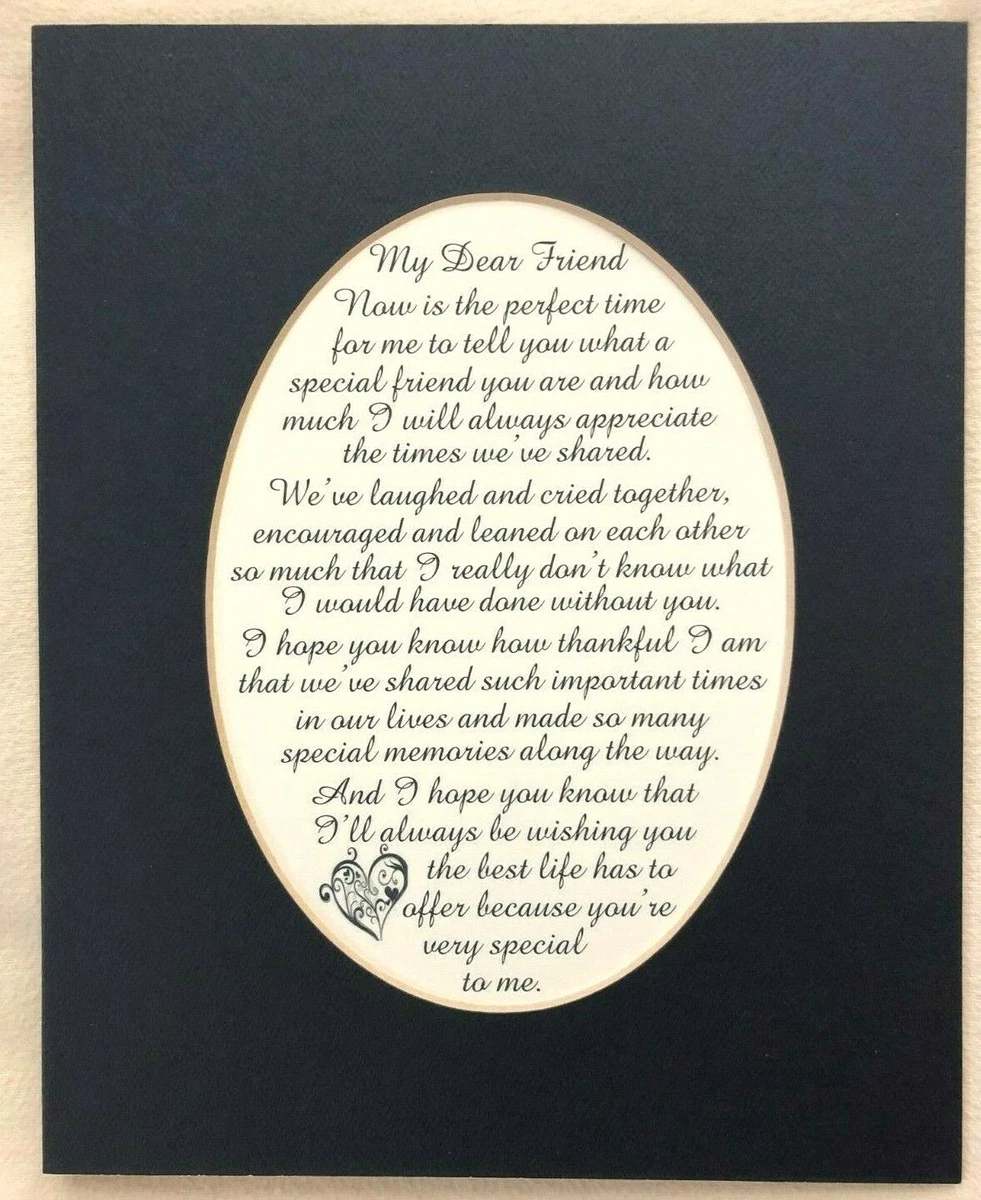 My Dear Friend
Now is the perfect time
for me to tell you what a
special friend you are and how
much I will always appreciate
the times we've shared.
We've laughed and cried together,
encouraged and leaned on each other
so much that I really don't know what
I would have done without you.
I hope you know how thankful I am
that we've shared such important times
in our lives and made so many
special memories along the way.
And I hope you know that
I'll always be wishing you
the best life has to
offer because you're
very special
to me.